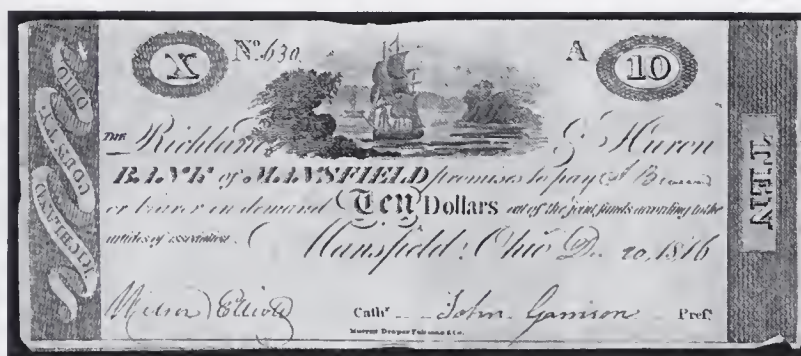 X
No. 630
A
10
OHIO
COUNTY.
RICHLAND
THE Richland & Huron
BANK of MANSFIELD promises to pay A
or bearer on demand Ten Dollars out of the joint funds according to the
articles of association. Mansfield: Ohio De. 20, 1816
TEN
Wilson Elliott Cashr. John Garrison Prest.
Murray Draper Fairman & Co.